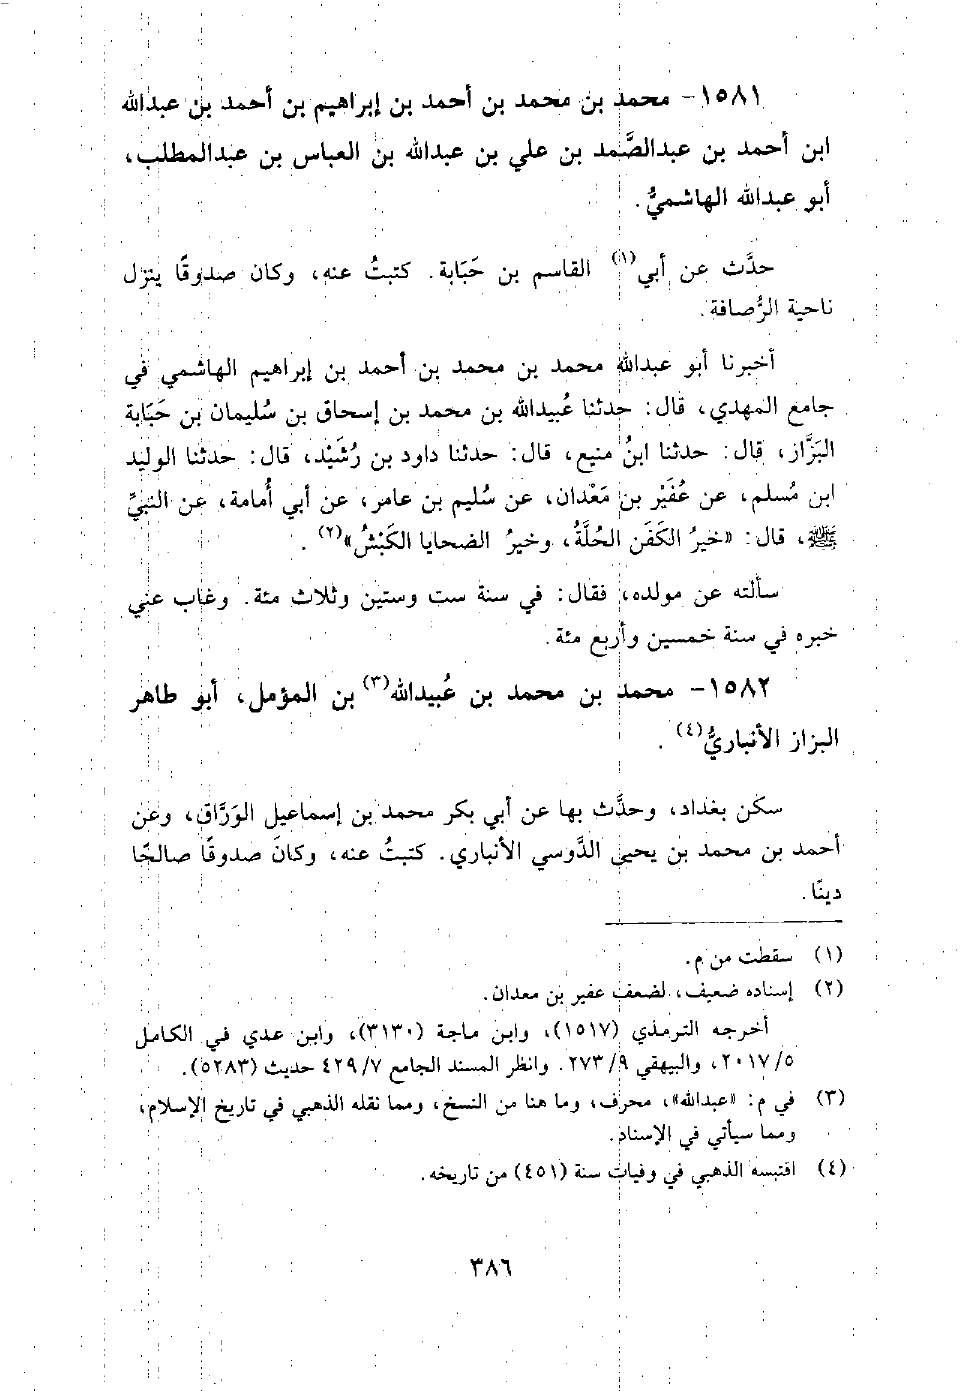 ١٥٨١- محمد بن محمد بن أحمد بن إبراهيم بن أحمد بن عبدالله
ابن أحمد بن عبدالصَّمد بن علي بن عبدالله بن العباس بن عبدالمطلب،
أبو عبدالله الهاشميُّ.
حدَّث عن أبي(١) القاسم بن حَبَابة. كتبتُ عنه، وكان صدوقًا ينزل
ناحية الرُّصافة.
أخبرنا أبو عبدالله محمد بن محمد بن أحمد بن إبراهيم الهاشمي في
جامع المهدي، قال: حدثنا عُبيدالله بن محمد بن إسحاق بن سُليمان بن حَبَابة
البَزَّاز، قال: حدثنا ابنُ منيع، قال: حدثنا داود بن رُشَيْد، قال: حدثنا الوليد
ابن مُسلم، عن عُفَيْر بن مَعْدان، عن سُليم بن عامر، عن أبي أُمامة، عن النبيِّ
ﷺ، قال: «خيرُ الكَفَن الحُلَّةُ، وخيرُ الضحايا الكَبْشُ»(٢).
سألته عن مولده، فقال: في سنة ست وستين وثلاث مئة. وغاب عني
خبره في سنة خمسين وأربع مئة.
١٥٨٢- محمد بن محمد بن عُبيدالله(٣) بن المؤمل، أبو طاهر
البزاز الأنباريُّ(٤).
سكن بغداد، وحدَّث بها عن أبي بكر محمد بن إسماعيل الوَرَّاق، وعن
أحمد بن محمد بن يحيى الدَّوسي الأنباري. كتبتُ عنه، وكانَ صدوقًا صالحًا
دينًا.
(١) سقطت من م.
(٢) إسناده ضعيف، لضعف عفير بن معدان.
أخرجه الترمذي (١٥١٧)، وابن ماجة (٣١٣٠)، وابن عدي في الكامل
٥/ ٢٠١٧، والبيهقي ٩/ ٢٧٣. وانظر المسند الجامع ٧/ ٤٢٩ حديث (٥٢٨٣).
(٣) في م: «عبدالله»، محرف، وما هنا من النسخ، ومما نقله الذهبي في تاريخ الإسلام،
ومما سيأتي في الإسناد.
(٤) اقتبسه الذهبي في وفيات سنة (٤٥١) من تاريخه.
٣٨٦